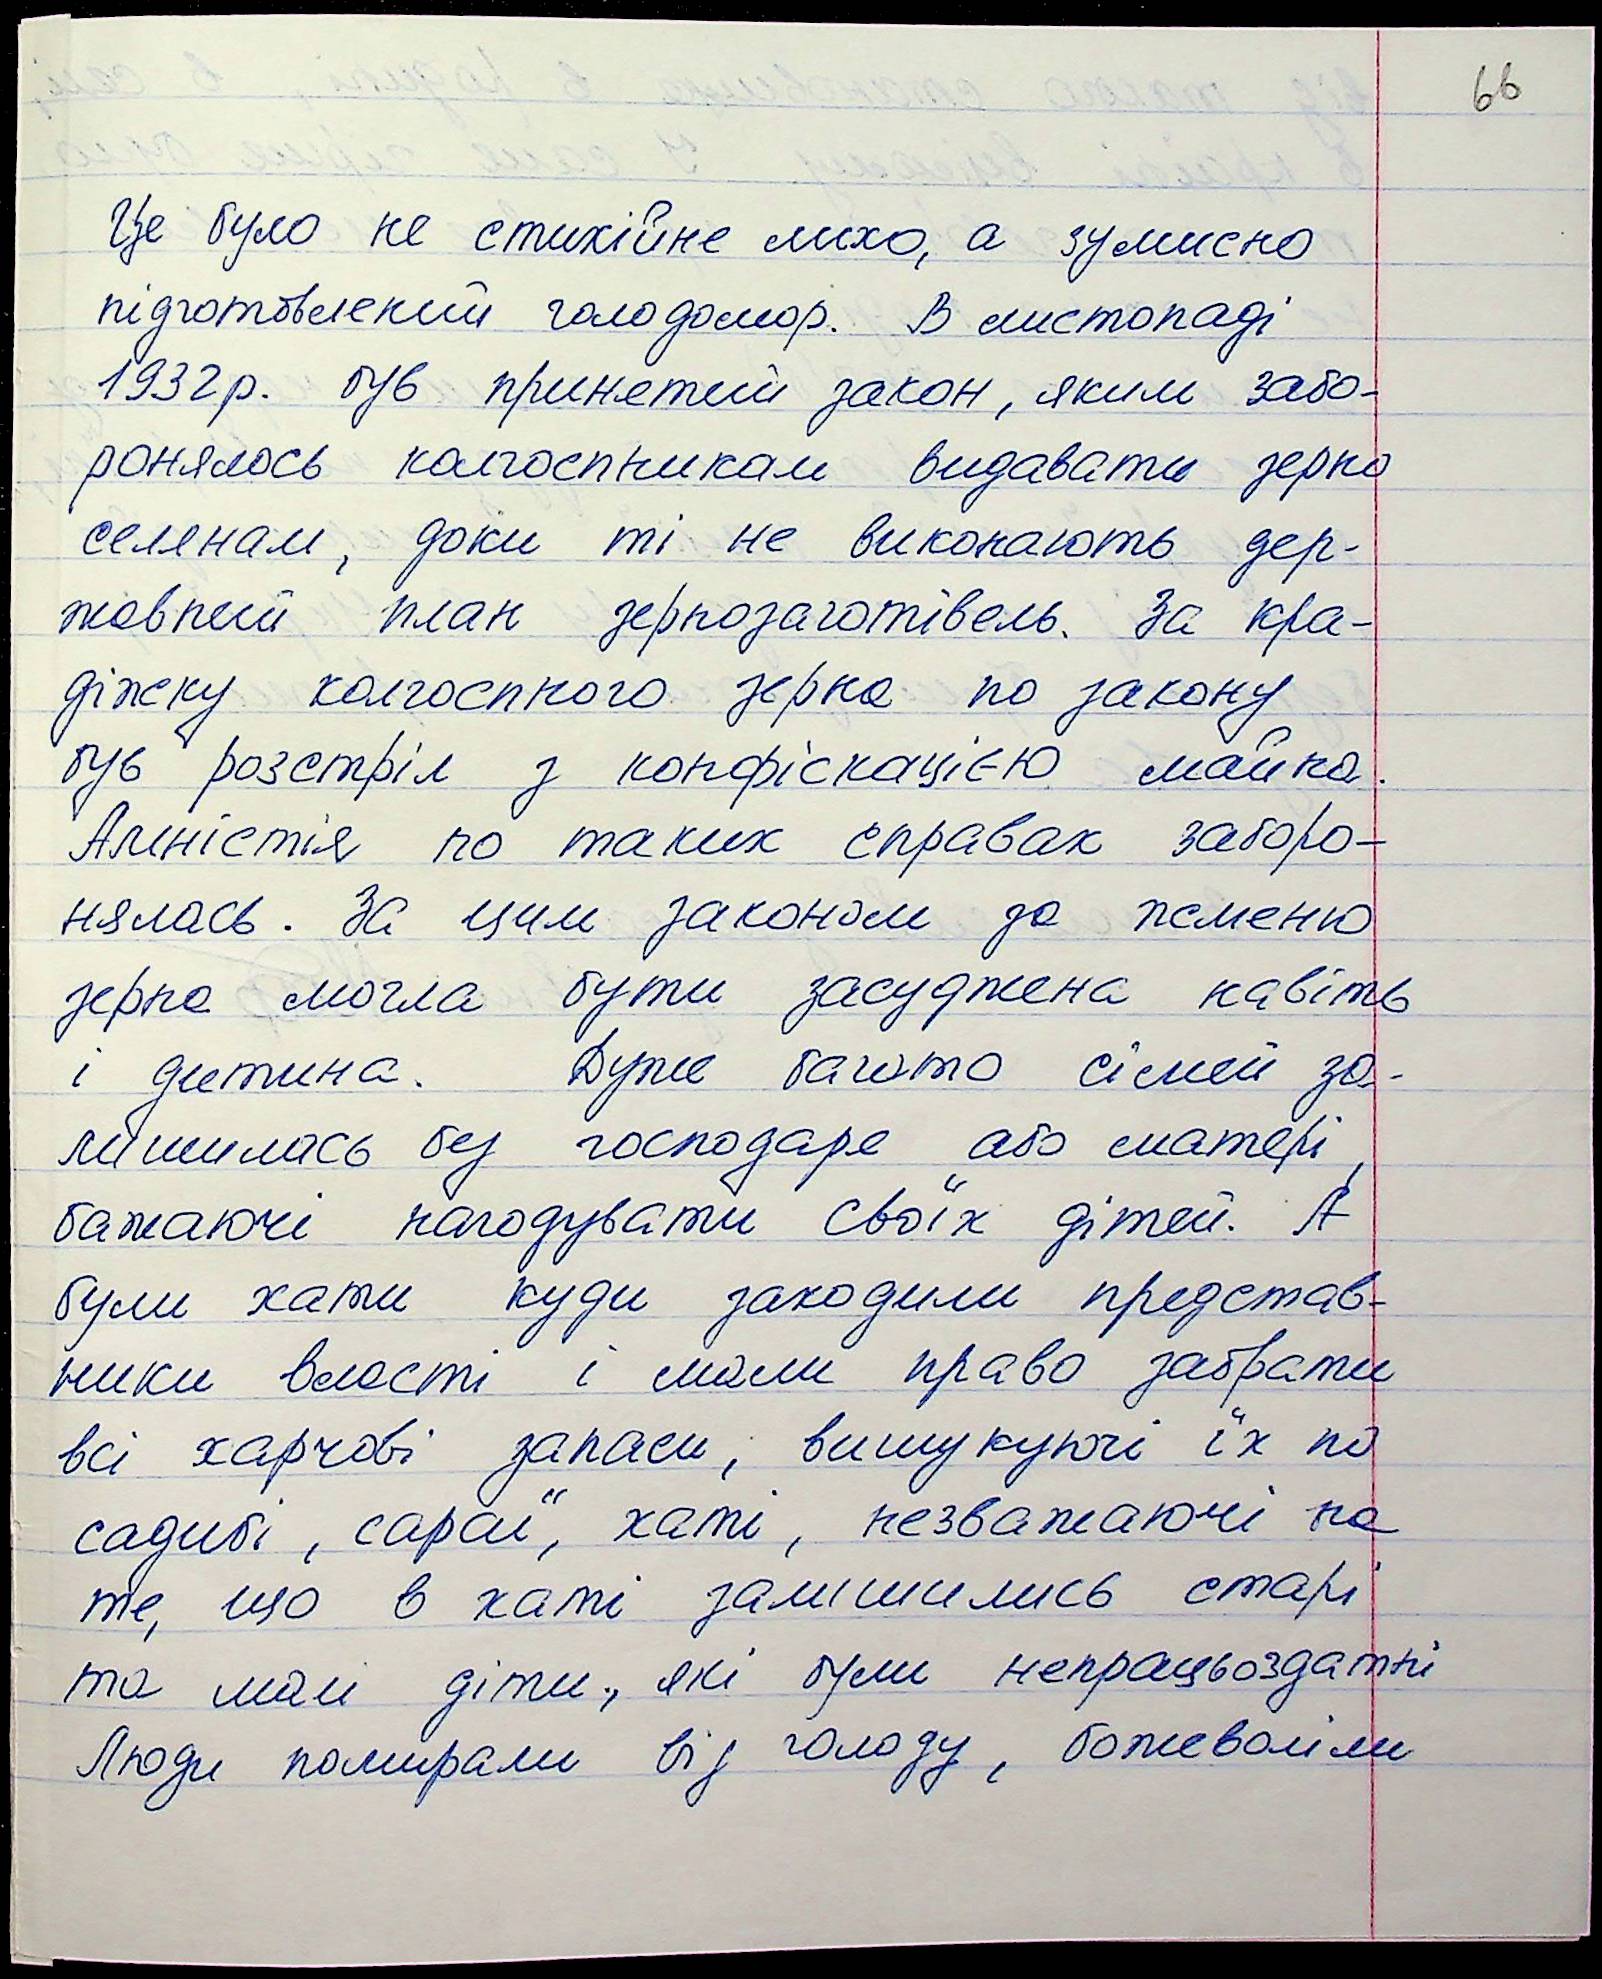 66
Це було не стихійне лихо, а зумисно
підготовлений голодомор. В листопаді
1932р. був принятий закон, яким забо-
ронялось колгоспникам видавати зерно
селянам, доки ті не виконають дер-
жавний план зернозаготівель. За кра-
діжку колгоспного зерна по закону
був розстріл з конфіскацією майна.
Амністія по таких справах заборо-
нялась. За цим законом за жменю
зерна могла бути засуджена навіть
і дитина. Дуже багато сімей за-
лишилась без господаря або матері,
бажаючі нагодувати своїх дітей. А
були хати куди заходили представ-
ники власті і мали право забрати
всі харчові запаси, вишукуючі їх по
садибі, сараї, хаті, незважаючі на
те, що в хаті залишились старі
та малі діти, які були непрацьоздатні
Люди помирали від голоду, божеволіли